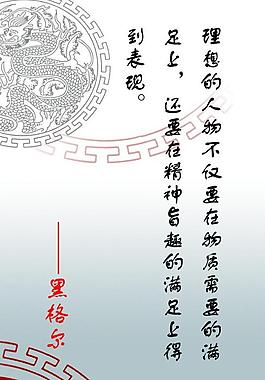 理想的人物不仅要在物质需要的满
足上，还要在精神旨趣的满足上得
到表现。
——黑格尔